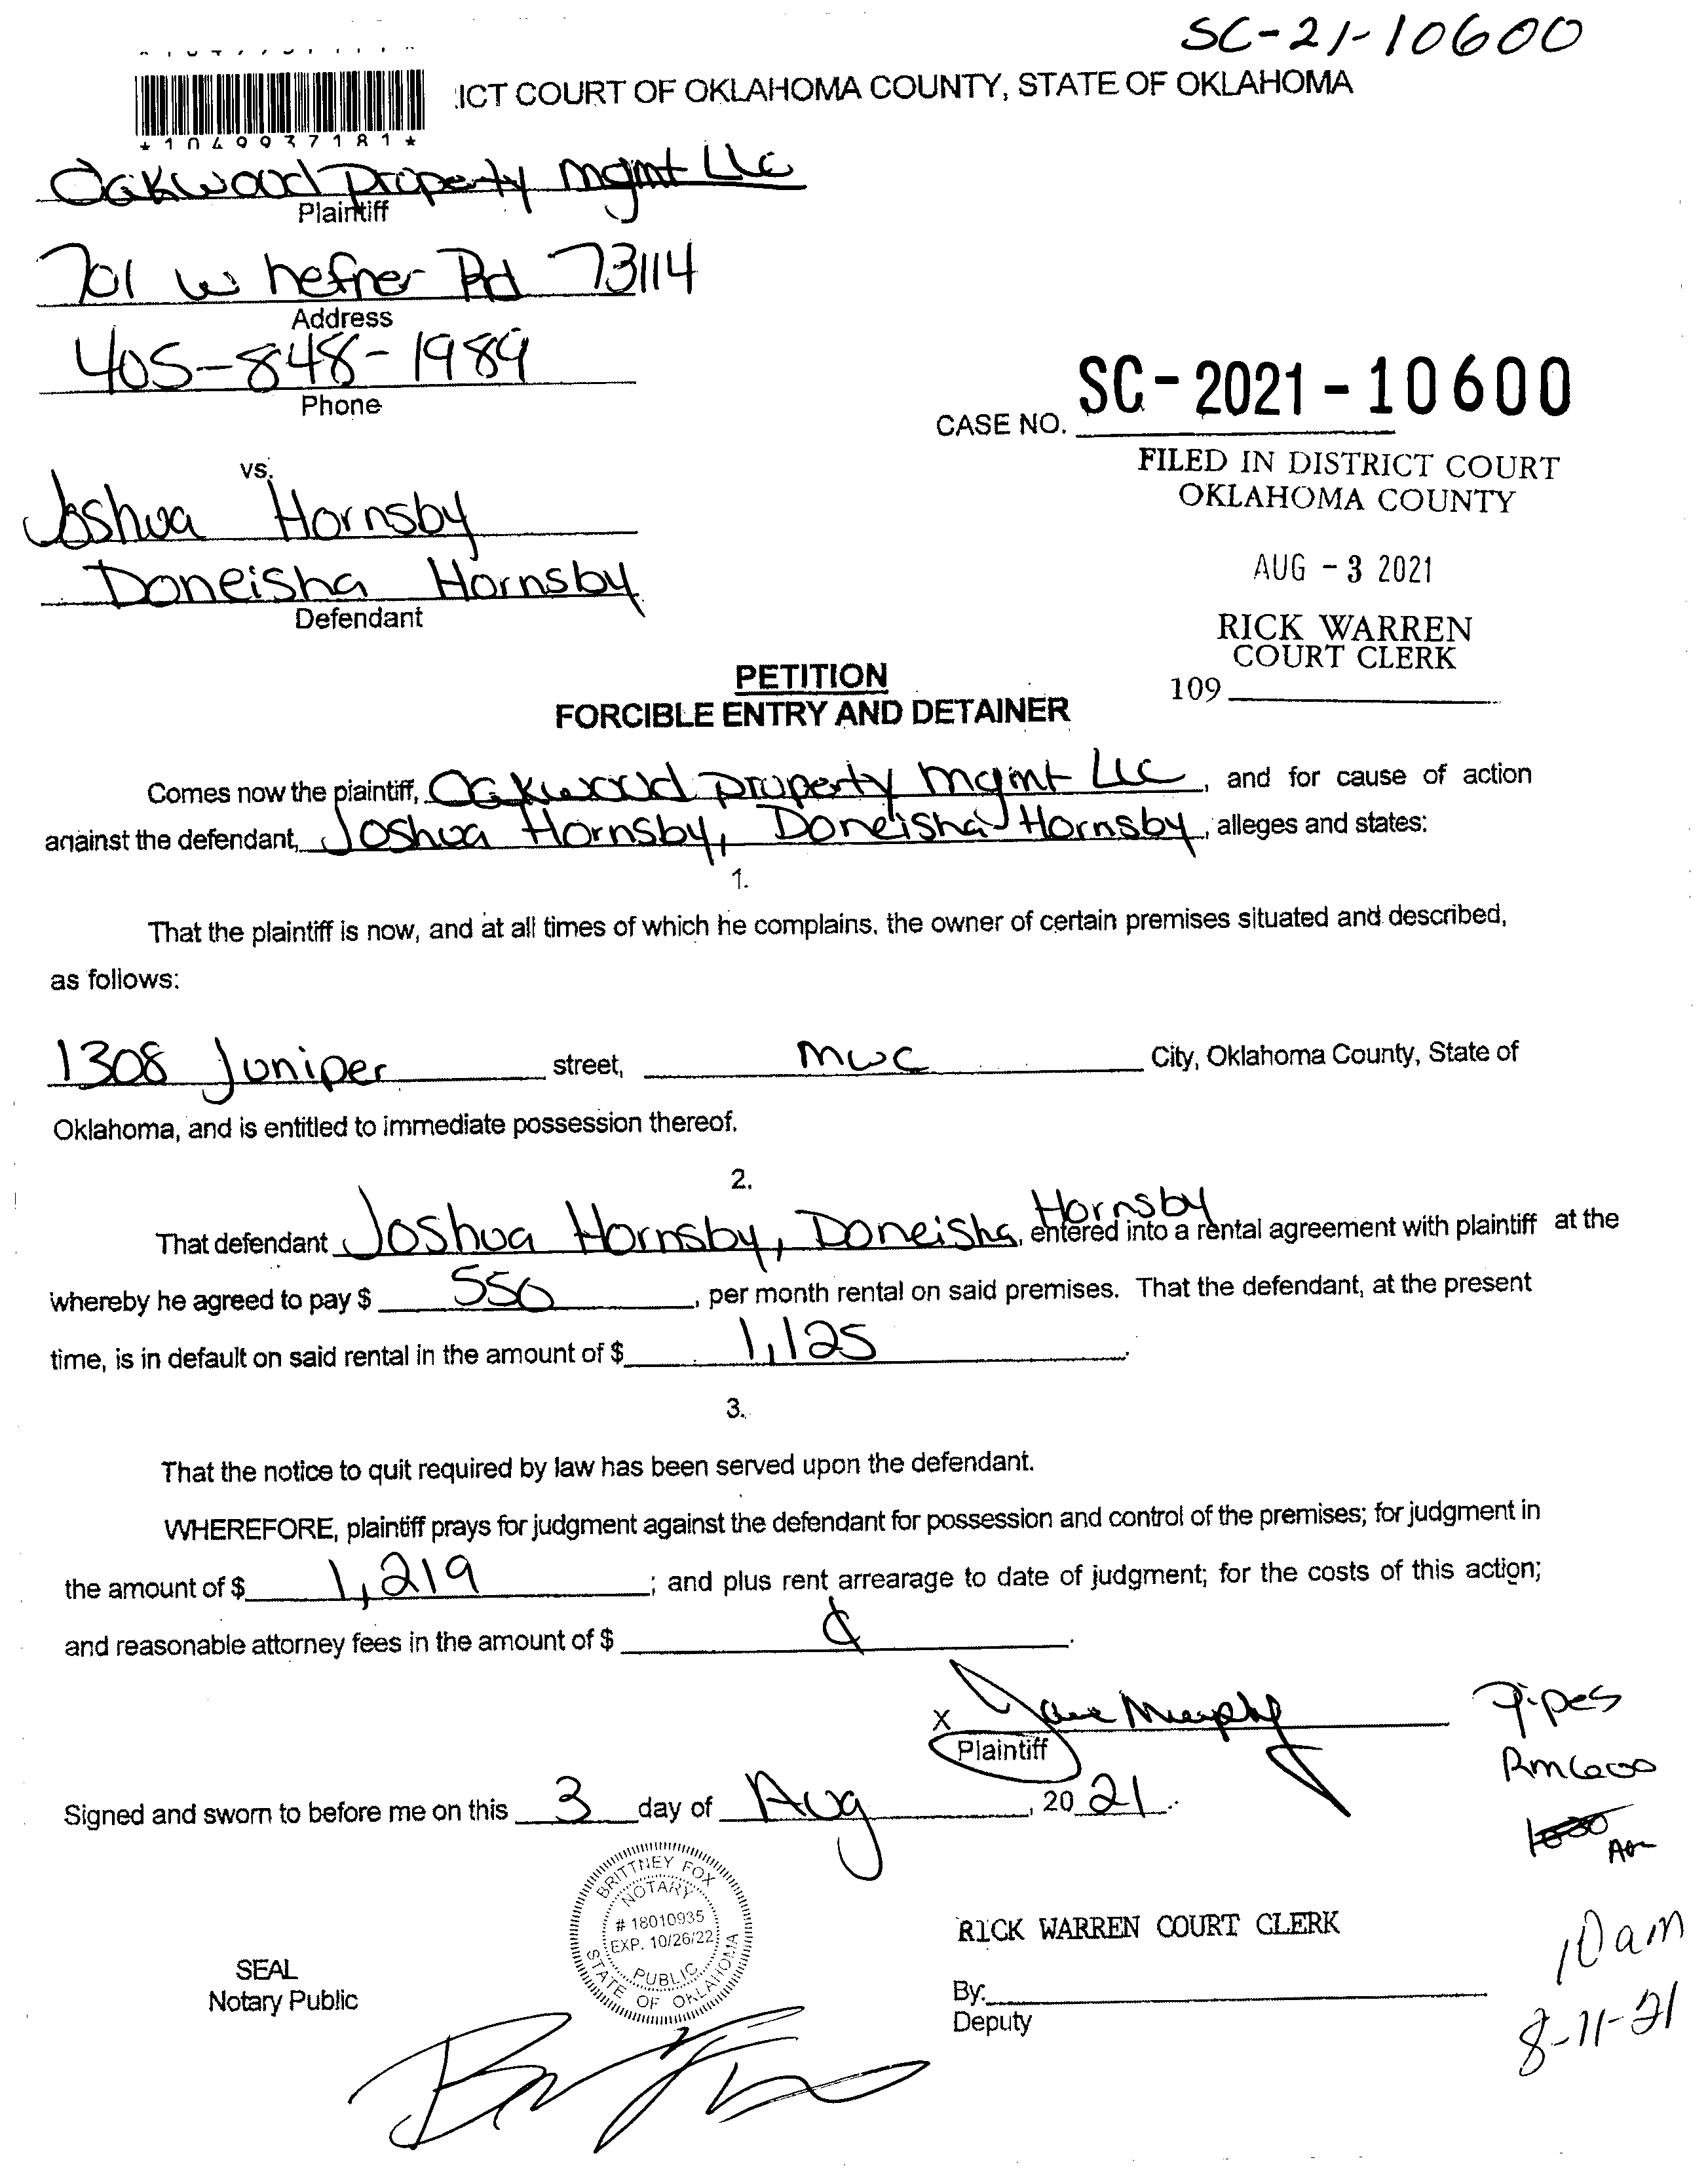 SC-21-10600
ICT COURT OF OKLAHOMA COUNTY, STATE OF OKLAHOMA
*1049937181*
Oakwood Property mgmt LLC
Plaintiff
701 w hefner Rd 73114
Address
405-848-1989
Phone
CASE NO. SC-2021-10600
FILED IN DISTRICT COURT
OKLAHOMA COUNTY
vs.
Joshua Hornsby
AUG - 3 2021
Doneisha Hornsby
Defendant
RICK WARREN
COURT CLERK
109
PETITION
FORCIBLE ENTRY AND DETAINER
Comes now the plaintiff, Oakwood Property mgmt LLC, and for cause of action
against the defendant, Joshua Hornsby, Doneisha Hornsby, alleges and states:
1.
That the plaintiff is now, and at all times of which he complains, the owner of certain premises situated and described,
as follows:
1308 Juniper street, mwc City, Oklahoma County, State of
Oklahoma, and is entitled to immediate possession thereof.
2.
That defendant Joshua Hornsby, Doneisha Hornsby, entered into a rental agreement with plaintiff at the
whereby he agreed to pay $ 550, per month rental on said premises. That the defendant, at the present
time, is in default on said rental in the amount of $ 1,125.
3.
That the notice to quit required by law has been served upon the defendant.
WHEREFORE, plaintiff prays for judgment against the defendant for possession and control of the premises; for judgment in
the amount of $ 1,219; and plus rent arrearage to date of judgment; for the costs of this action;
and reasonable attorney fees in the amount of $
X Murphy
Plaintiff
Pipes
Rm 600
Signed and sworn to before me on this 3 day of Aug, 20 21.
1030 Am
BRITTNEY FOX
NOTARY
# 18010935
EXP. 10/26/22
PUBLIC
STATE OF OKLAHOMA
RICK WARREN COURT CLERK
10am
SEAL
Notary Public
By:
Deputy
8-11-21